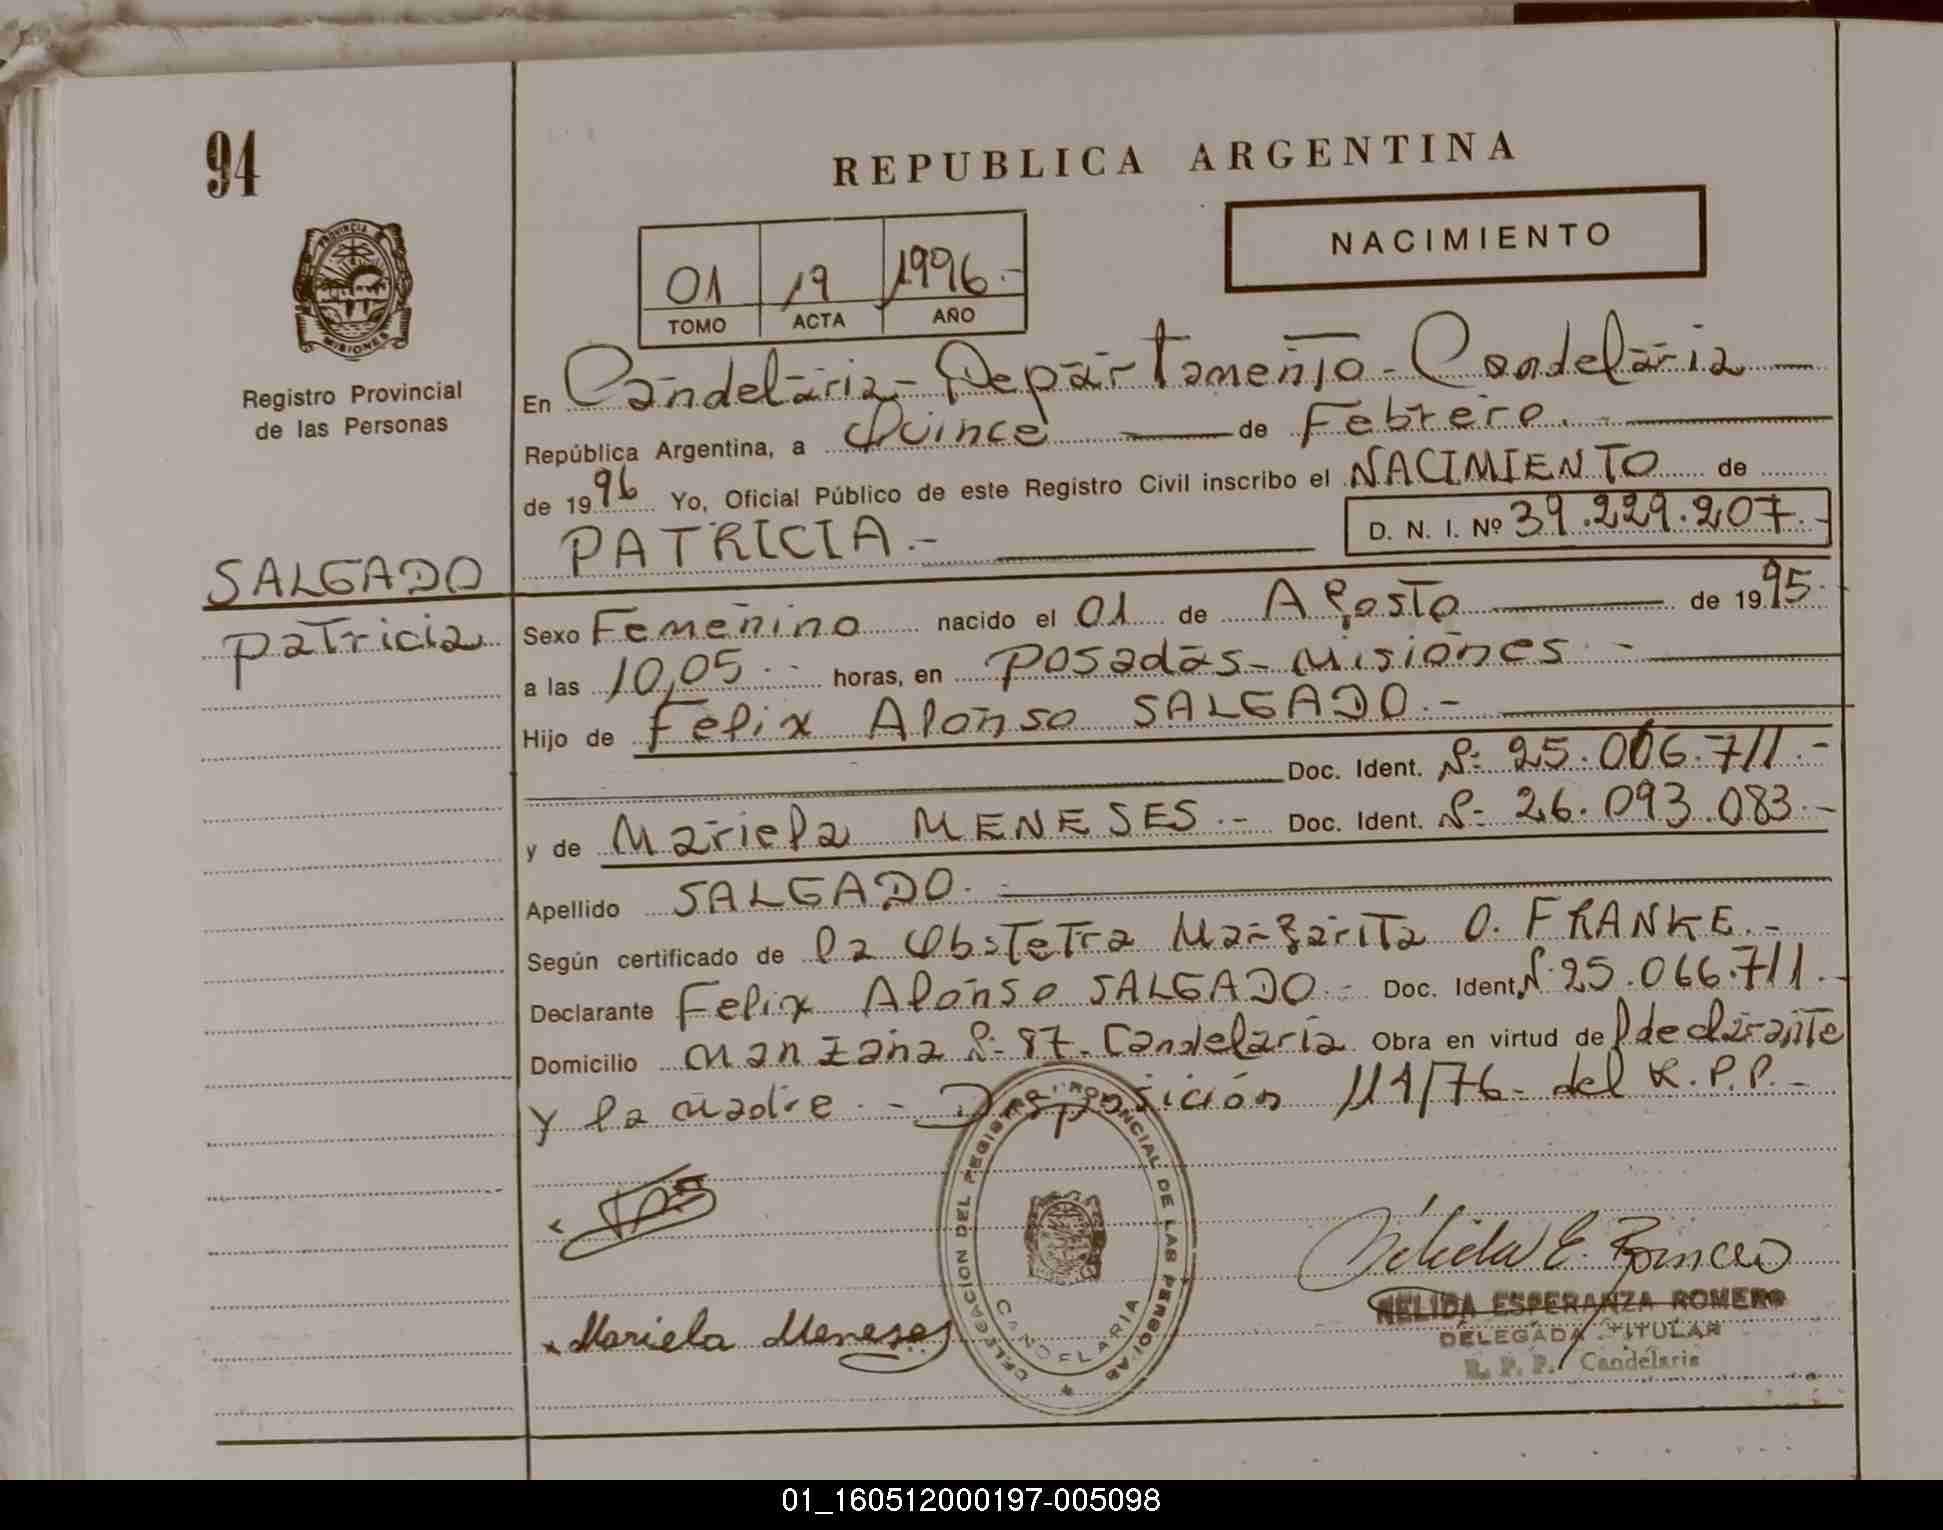 94
REPUBLICA ARGENTINA
NACIMIENTO
01 19 1996.-
TOMO ACTA AÑO
PROVINCIA DE
MISIONES
Registro Provincial
de las Personas
En Candelaria - Departamento - Candelaria
República Argentina, a Quince de Febrero
de 1996 Yo, Oficial Público de este Registro Civil inscribo el NACIMIENTO de
PATRICIA.- D. N. I. Nº 39.229.207.-
SALGADO
Patricia
Sexo Femenino nacido el 01 de Agosto de 1995.
a las 10,05 horas, en Posadas - Misiones -
Hijo de Felix Alonso SALGADO.-
Doc. Ident. Nº 25.066.711.-
y de Mariela MENESES.- Doc. Ident. Nº 26.093.083.-
Apellido SALGADO.-
Según certificado de la Obstetra Margarita O. FRANKE.-
Declarante Felix Alonso SALGADO.- Doc. Ident, Nº 25.066.711.-
Domicilio Manzana Nº 87 - Candelaria Obra en virtud de l declarante
y la madre.- Disposición 114/76 - del R.P.P.-
DELEGACION DEL REGISTRO PROVINCIAL DE LAS PERSONAS
CANDELARIA
Mariela Meneses
Nélida E. Romero
NELIDA ESPERANZA ROMERO
DELEGADA TITULAR
R. P. P. Candelaria
01_160512000197-005098